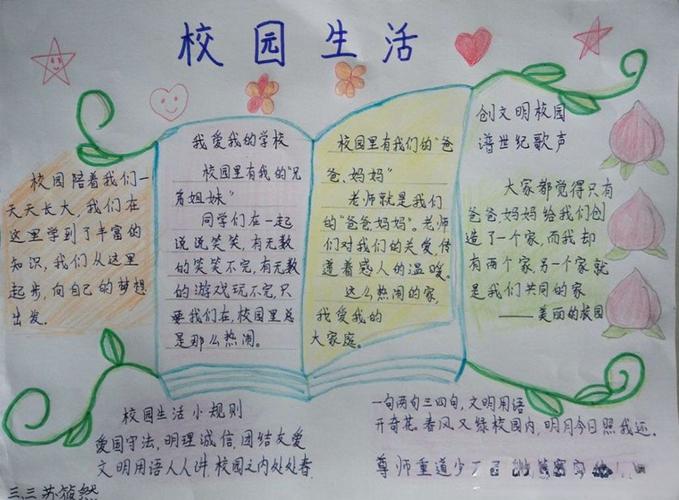 校园生活
校园陪着我们一
天天长大,我们在
这里学到了丰富的
知识,我们从这里
起步,向自己的梦想
出发。
我爱我的学校
校园里有我的“兄
弟姐妹”
同学们在一起
说说笑笑,有无数
的笑笑不完,有无数
的游戏玩不完,只
要我们在,校园里总
是那么热闹。
校园里有我们的“爸
爸、妈妈”
老师就是我们
的“爸爸妈妈”。老师
们对我们的关爱,传
递着感人的温暖。
这么热闹的家,
我爱我的
大家庭。
创文明校园
谱世纪歌声
大家都觉得只有
爸爸妈妈给我们创
造了一个家,而我却
有两个家,另一个家就
是我们共同的家
——美丽的校园
校园生活小规则
爱国守法,明理诚信,团结友爱
文明用语人人讲,校园之内处处春
一句两句三四句,文明用语
开奇花,春风又绿校园内,明月今日照我还。
尊师重道少
三.三苏筱然